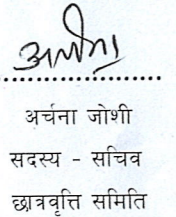 अर्चना
अर्चना जोशी
सदस्य - सचिव
छात्रवृत्ति समिति